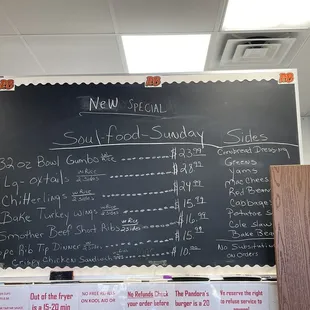 New Special
Soul-food-Sunday
Sides
32 oz Bowl Gumbo w/Rice $23.99
Lg-oxtails w/Rice 2 sides $28.99
Chitterlings w/Rice 2 sides $24.99
Bake Turkey wings w/Rice 2 sides $15.99
Smother Beef Short Ribs 2 sides $16.99
Rib Tip Dinner $15.
Crispy Chicken Sandwich $10.
Cornbread Dressing
Greens
Yams
Mac Chees
Red Bean
Cabbage
Potatoe S
Cole Slaw
Bake Bean
No Substitu
on Orders
Out of the fryer
is 15-20 min
NO FREE REFILLS
ON KOOL AID OR
No Refunds Check
your order before
The Pandora's
burger is a 20
We reserve the right
to refuse service to